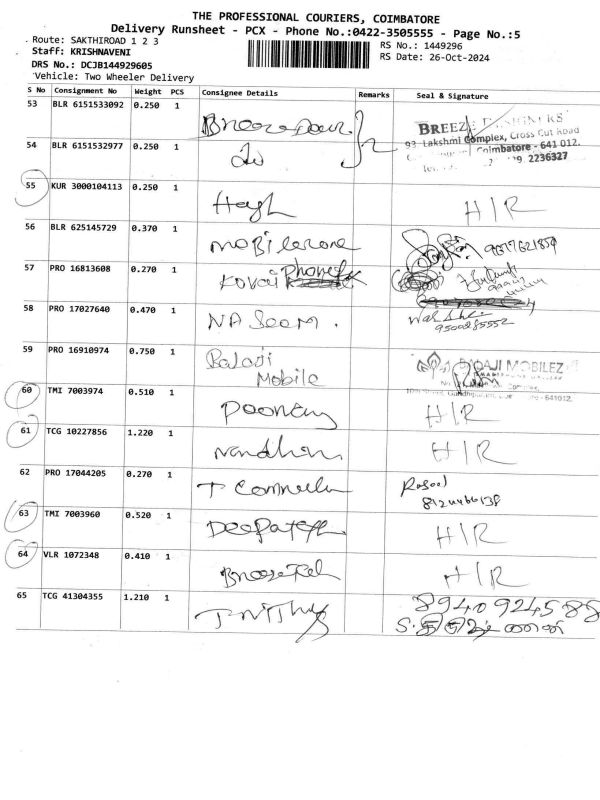 THE PROFESSIONAL COURIERS, COIMBATORE
Delivery Runsheet - PCX - Phone No.:0422-3505555 - Page No.:5
Route: SAKTHIROAD 1 2 3
RS No.: 1449296
Staff: KRISHNAVENI
RS Date: 26-Oct-2024
DRS No.: DCJB144929605
Vehicle: Two Wheeler Delivery
S No Consignment No Weight PCS Consignee Details Remarks Seal & Signature
53 BLR 6151533092 0.250 1
BREEZE DESIGNERS
93, Lakshmi Complex, Cross Cut Road
54 BLR 6151532977 0.250 1
Coimbatore - 641 012.
2236327
55 KUR 3000104113 0.250 1
H/R
56 BLR 625145729 0.370 1
Mobilezone
9877621859
57 PRO 16813608 0.270 1
Kovai Phones
58 PRO 17027640 0.470 1
NASeem.
9500285552
59 PRO 16910974 0.750 1
Balaji
Mobile
BALAJI MOBILEZ
Complex,
641012.
60 TMI 7003974 0.510 1
H/R
61 TCG 10227856 1.220 1
Nandhini
H/R
62 PRO 17044205 0.270 1
Rasool
8124466138
63 TMI 7003960 0.520 1
H/R
64 VLR 1072348 0.410 1
H/R
65 TCG 41304355 1.210 1
8940924588